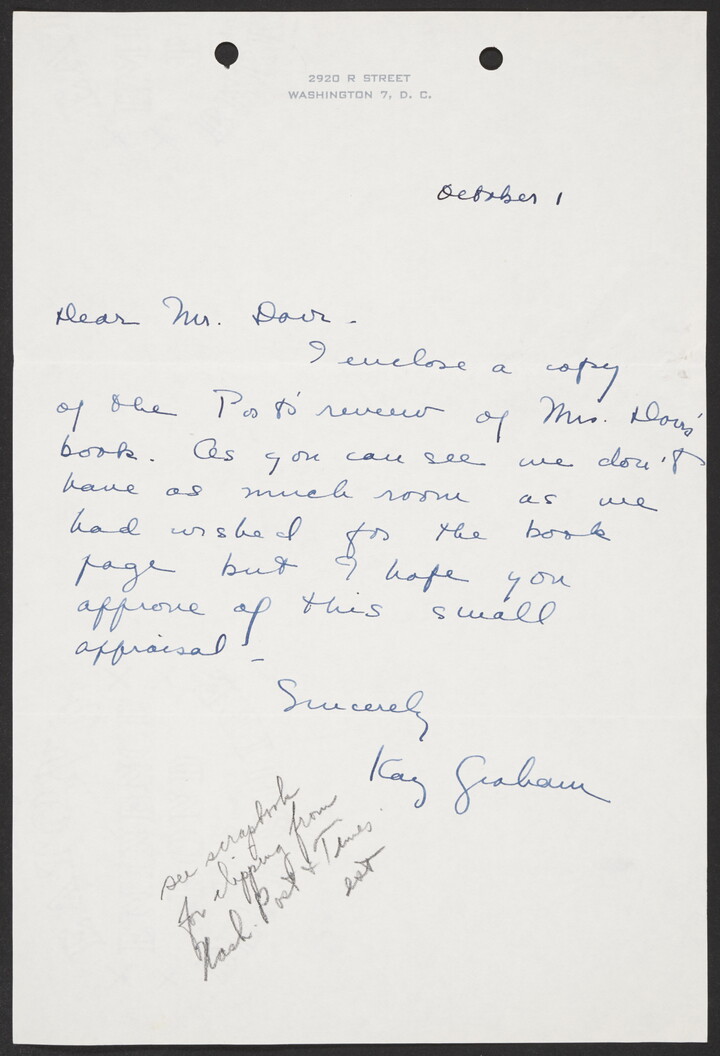 2920 R STREET
WASHINGTON 7, D. C.
October 1
Dear Mr. Davis -
I enclose a copy
of the Post's review of Mrs. Davis'
book. As you can see we don't
have as much room as we
had wished for the book
page but I hope you
approve of this small
appraisal -
Sincerely
Kay Graham
see scrapbook
for clipping from
Wash. Post & Times